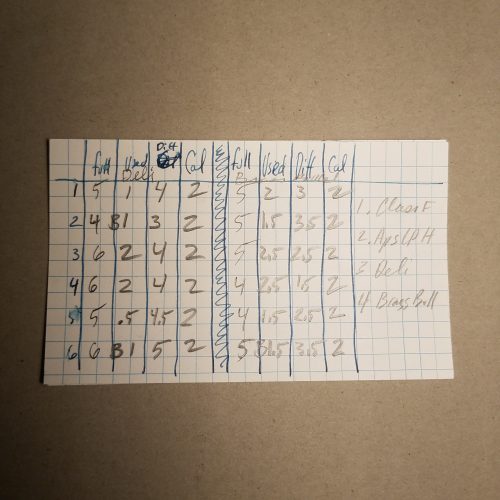 Full Used Diff Cal Full Used Diff Cal
Deli
1 5 1 4 2 5 2 3 2
2 4 1 3 2 5 1.5 3.5 2
3 6 2 4 2 5 2.5 2.5 2
4 6 2 4 2 4 2.5 1.5 2
5 5 .5 4.5 2 4 1.5 2.5 2
6 6 1 5 2 5 1.5 3.5 2
1. Clasn F
2. Aps LP H
3 Deli
4 Brass Ball